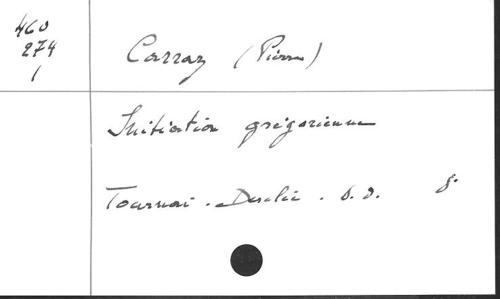 460
274
1
Carraz (Pierre)
Initiation grégorienne
Tournai. Desclée. S. d. 8°